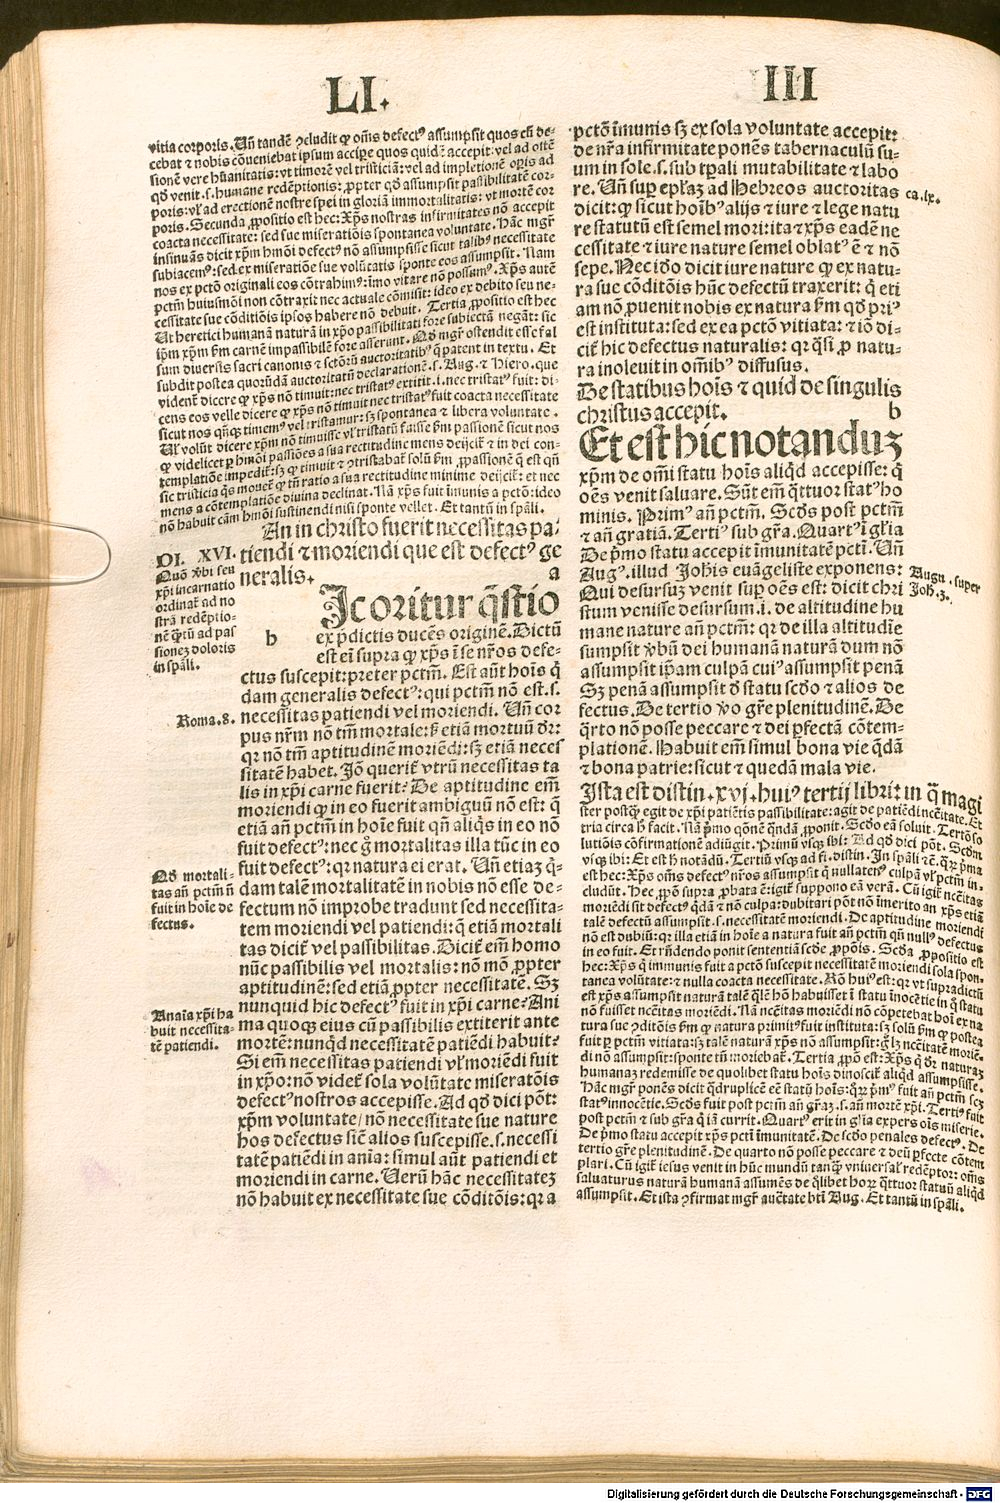 LI.
III
vitia corporis. Vñ tandē ꝯcludit ꝙ oēs defectꝰ assumpsit quos eū de-
cebat ⁊ nobis cōueniebat ipsum accipe quos quidē accepit: vel ad oste-
sionē vere hūanitatis: vt timorē vel tristiciā: vel ad impletionē opis ad
qd̄ venit .s. humane redēptionis: ꝓpter qd̄ assumpsit passibilitatē cor-
poris: vl̓ ad erectionē nostre spei in gloriā immortalitatis: vt mortē cor
poris. Secunda ꝓpositio est hec: Xp̄s nostras infirmitates nō accepit
coacta necessitate: sed sue miseratiōis spontanea volūtate. Hāc mgr̄
insinuās dicit xp̄m hm̄oi defectꝰ nō assumpsisse sicut talibꝰ necessitate
subiacemꝰ: sed ex miseratiōe sue volūtatis sponte eos assumpsit. Nam
nos ex pctō originali eos cōtrahimꝰ: imo vitare nō possumꝰ. Xp̄s autē
pctm̄ huiusmōi non cōtraxit nec actuale cōmisit: ideo ex debito seu ne-
cessitate sue cōditiōis ipsos habere nō debuit. Tertia ꝓpositio est hec
Ut heretici humanā naturā in xp̄o passibilitati fore subiectā negāt: sic
ip̄m xp̄m ⁊m carnē impassibilē fore asserunt. Qd̄ mgr̄ ostendit esse fal
sum diuersis sacri canonis ⁊ sctōrū auctoritatibꝰ q̄ patent in textu. Et
subdit postea quorūdā auctoritatū declarationē .s. Aug. ⁊ Hiero. que
vident̄ dicere ꝙ xp̄s nō timuit: nec tristatꝰ extitit .i. nec tristatꝰ fuit: di-
cens eos velle dicere ꝙ xp̄s nō timuit nec tristatꝰ fuit coacta necessitate
sicut nos qn̄qꝫ timemꝰ vel tristamur: sꝫ spontanea ⁊ libera voluntate.
Vl̓ volūt dicere xp̄m nō timuisse vl̓ tristatū fuisse ⁊m passionē sicut nos
ꝙ videlicet ꝑ hm̄oi passiōes a sua rectitudine mens deijcit̄ ⁊ in dei con-
templatiōe impedit̄: sꝫ ꝙ timuit ⁊ ꝯtristabat̄ solū ⁊m ꝓpassionē q̄ est qn̄
sic tristicia q̄s mouet̄ ꝙ tn̄ ratio a sua rectitudine minime deijcit̄: et nec
mens a cōtemplatiōe diuina declinat. Nā xp̄s fuit īmunis a pctō: ideo
nō habuit cām hm̄oi sustinendi nisi sponte vellet. Et tantū in sp̄ali.
An in christo fuerit necessitas pa-
tiendi ⁊ moriendi que est defectꝰ ge
neralis. a
DI. XVI.
Quō v̄bi seu
xp̄i incarnatio
ordinat̄ ad no
strā redēptio-
nē q̄ꝫtū ad pas
sionez doloris
in sp̄ali.
b
HIc oritur q̄stio
ex p̄dictis ducēs originē. Dictū
est ei supra ꝙ xp̄s i se nr̄os defe-
ctus suscepit: preter pctm̄. Est aūt hoīs q̄
dam generalis defectꝰ: qui pctm̄ nō est .s.
Roma. 8.
necessitas patiendi vel moriendi. Vñ cor
pus nr̄m nō tm̄ mortale: s̄ etiā mortuū dr̄:
qr nō tm̄ aptitudinē moriēdi: sꝫ etiā neces
sitatē habet. Iō querit̄ vtrū necessitas ta
lis in xp̄i carne fuerit? De aptitudine em̄
moriendi ꝙ in eo fuerit ambiguū nō est: q̄
etiā añ pctm̄ in hoīe fuit qn̄ aliq̄s in eo nō
fuit defectꝰ: nec g̊ mortalitas illa tūc in eo
fuit defectꝰ: qr natura ei erat. Vñ etiaꝫ q̄-
Qd̄ mortali-
tas añ pctm̄ n̄
fuit in hoīe de
fectus.
dam talē mortalitatē in nobis nō esse de-
fectum nō improbe tradunt sed necessita-
tem moriendi vel patiendi: q̄ etiā mortali
tas dicit̄ vel passibilitas. Dicit̄ em̄ homo
nūc passibilis vel mortalis: nō mō ꝓpter
aptitudinē: sed etiā ꝓpter necessitatē. Sꝫ
nunquid hic defectꝰ fuit in xp̄i carne? Ani
Anaīa xp̄i ha
buit necessita-
tē patiendi.
ma quoqꝫ eius cū passibilis extiterit ante
mortē: nunqd̄ necessitatē patiēdi habuit?
Si em̄ necessitas patiendi vl̓ moriēdi fuit
in xp̄o: nō videt̄ sola volūtate miseratōis
defectꝰ nostros accepisse. Ad qd̄ dici pōt:
xp̄m voluntate/ nō necessitate sue nature
hos defectus sic̄ alios suscepisse .s. necessi
tatē patiēdi in anīa: simul aūt patiendi et
moriendi in carne. Verū hāc necessitateꝫ
nō habuit ex necessitate sue cōditōis: qr a
pctō īmunis sꝫ ex sola voluntate accepit:
de nr̄a infirmitate ponēs tabernaculū su-
um in sole .s. sub tp̄ali mutabilitate ⁊ labo
re. Vñ sup ep̄laꝫ ad Hebreos auctoritas
ca. ix.
dicit: ꝙ sicut hoībꝰ alijs ⁊ iure ⁊ lege natu
re statutū est semel mori: ita ⁊ xp̄s eadē ne
cessitate ⁊ iure nature semel oblatꝰ ē ⁊ nō
sepe. Nec ido dicit iure nature ꝙ ex natu-
ra sue cōditiōis hūc defectū traxerit: q̄ eti
am nō ꝓuenit nobis ex natura ⁊m qd̄ priꝰ
est instituta: sed ex ea pctō vitiata: ⁊ iō di-
cit̄ hic defectus naturalis: qr q̄si ꝓ natu-
ra inoleuit in omībꝰ diffusus.
De statibus hoīs ⁊ quid de singulis
christus accepit. b
Et est hic notanduꝫ
xp̄m de omī statu hoīs aliqd̄ accepisse: q̄
oēs venit saluare. Sūt em̄ q̄ttuor statꝰ ho
minis. Primꝰ añ pctm̄. Scd̄s post pctm̄
⁊ añ gratiā. Tertiꝰ sub gr̄a. Quartꝰ ī gl̄ia
De p̄mo statu accepit īmunitatē pcti. Vñ
Augꝰ. illud Joh̄is euāgeliste exponens:
Augu. super
Joh. 3.
Qui desursuꝫ venit sup oēs est: dicit chri
stum venisse desursum .i. de altitudine hu
mane nature añ pctm̄: qr de illa altitudīe
sumpsit v̄bū dei humanā naturā dum nō
assumpsit ip̄am culpā cuiꝰ assumpsit penā
Sꝫ penā assumpsit d̄ statu scd̄o ⁊ alios de
fectus. De tertio v̄o gr̄e plenitudinē. De
q̄rto nō posse peccare ⁊ dei ꝑfectā cōtem-
plationē. Habuit em̄ simul bona vie q̄dā
⁊ bona patrie: sicut ⁊ quedā mala vie.
Ista est distin. xvj. huiꝰ tertij libri: in q̄ magi
ster postq̄ꝫ egit de xp̄i patiētis passibilitate: agit de patiēdi ncc̄itate. Et
tria circa h̄ facit. Nā p̄mo qōnē q̄ndā ꝓponit. Scd̄o eā soluit. Tertō so
lutiōis cōfirmationē adiūgit. Primū vsqꝫ ibi: Ad qd̄ dici pōt. Scd̄m
vsqꝫ ibi: Et est h̄ notādū. Tertiū vsqꝫ ad fi. distin. In sp̄ali ⁊c̄. q̄ꝝ p̄ma
est hec: Xp̄s om̄s defectꝰ nr̄os assumpsit q̄ nullatenꝰ culpā vl̓ pctm̄ in-
cludūt. Hec ꝓpō supra ꝓbata ē: igit̄ suppono eā verā. Cū igit̄ ncc̄itas
moriēdi sit defectꝰ q̄dā ⁊ nō culpa: dubitari pōt nō īmerito an xp̄s etiā
talē defectū assumpsit .s. necessitatē moriendi. De aptitudine moriendi
nō est dubiū: qr illa etiā in hoīe a natura fuit añ pctm̄ qn̄ nullꝰ defectus
in eo fuit. Et rn̄dendo ponit sententiā scd̄e ꝓpōis. Scd̄a ꝓpositio est
hec: Xp̄s q̄ immunis fuit a pctō suscepit necessitatē moriendi sola spon-
tanea volūtate: ⁊ nulla coacta necessitate. Rō huiꝰ est: qr vt supradictū
est xp̄s assumpsit naturā talē q̄lē hō habuisset ī statu īnocētie in q̄ statu
nō fuisset ncc̄itas moriēdi. Nā ncc̄itas moriēdi nō cōpetebat hoī ex na
tura sue ꝯditiōis ⁊m ꝙ natura primitꝰ fuit instituta: sꝫ solū ⁊m ꝙ postea
fuit ꝑ pctm̄ vitiata: sꝫ talē naturā xp̄s nō assumpsit: g̊ lꝫ ncc̄itatē moriē-
di nō assumpsit: sponte tn̄ moriebat̄. Tertia ꝓpō est: Xp̄s q̄ dr̄ naturaꝫ
humanaꝫ redemisse de quolibet statu hoīs dinoscit̄ aliqd̄ assumpsisse.
Hāc mgr̄ ponēs dicit q̄druplicē eē statū hoīs: q̄ꝝ p̄mꝰ fuit añ pctm̄ scꝫ
statꝰ innocētie. Scd̄s fuit post pctm̄ añ gr̄aꝫ .s. añ mortē xp̄i. Tertiꝰ fuit
post pctm̄ ⁊ sub gr̄a q̄ iā currit. Quartꝰ erit in gl̄ia expers oīs miserie.
De p̄mo statu accepit xp̄s pcti īmunitatē. De scd̄o penales defectꝰ. De
tertio gr̄e plenitudinē. De quarto nō posse peccare ⁊ deū ꝑfecte cōtem
plari. Cū igit̄ iesus venit in hūc mundū tanqꝫ vniuersal̓ redēptor: om̄s
saluaturus naturā humanā assumēs de q̄libet hoꝝ q̄ttuor statuū aliqd̄
assumpsit. Et ista ꝯfirmat mgr̄ auc̄tate bt̄i Aug. Et tantū in sp̄ali.
Digitalisierung gefördert durch die Deutsche Forschungsgemeinschaft - DFG